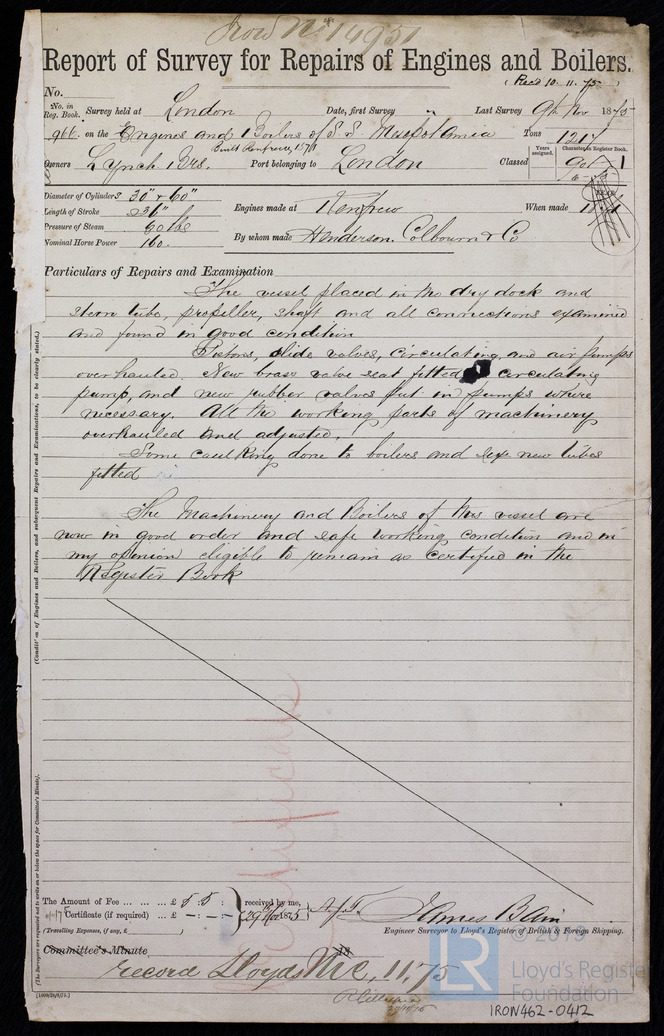 Iron No 14951
Report of Survey for Repairs of Engines and Boilers.
(Rec'd 10. 11. 75)
No.
No. in Reg. Book. Survey held at London Date, first Survey Last Survey 9th Nov 1875
966 on the Engines and Boilers of S.S. Mesopotamia Tons 1217
Built Renfrew, 1871
Owners Lynch Bros. Port belonging to London Classed Years assigned. Character in Register Book. 90 A 1
Diameter of Cylinders 30" & 60"
Length of Stroke 36"
Pressure of Steam 60 lbs
Nominal Horse Power 160.
Engines made at Renfrew When made
By whom made Henderson. Colbourn & Co
Particulars of Repairs and Examination
The vessel placed in the dry dock and
stern tube, propeller, shaft and all connections examined
and found in good condition
Pistons, slide valves, circulating, and air pumps
overhauled. New brass valve seat fitted circulating
pump, and new rubber valves put in pumps where
necessary. All the working parts of machinery
overhauled and adjusted.
Some caulking done to boilers and six new tubes
fitted
The Machinery and Boilers of this vessel are
now in good order and safe working condition and in
my opinion eligible to remain as certified in the
Register Book
(Condition of Engines and Boilers, and subsequent Repairs and Examinations, to be clearly stated.)
(The Surveyors are requested not to write on or below the space for Committee's Minute).
Certificate
The Amount of Fee ... ... ... £ 5 : 5 : received by me,
Certificate (if required) ... £ – : – : – 29/10 1875
(Travelling Expenses, if any, £ )
James Bain
Engineer Surveyor to Lloyd's Register of British & Foreign Shipping.
Committee's Minute 18
record Lloyds MC, 11, 75
© 2019
LR
Lloyd's Register
Foundation
IRON462-0412